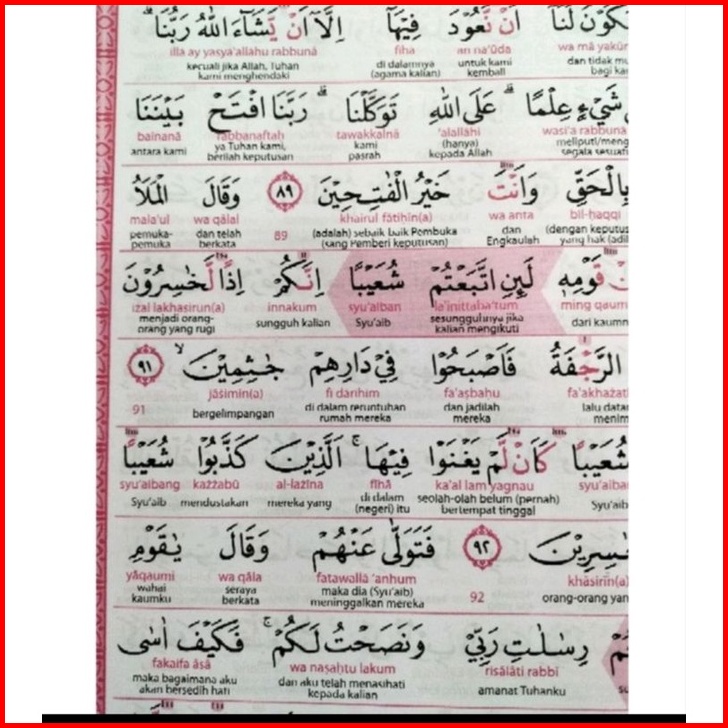 نَكُوْنَ لَنَآ اَنْ نَّعُوْدَ فِيْهَآ اِلَّآ اَنْ يَّشَاۤءَ اللّٰهُ رَبُّنَاۗ
illa ay yasya'allāhu rabbunā fīhā an na'ūda wa mā yakūn
kecuali jika Allah, Tuhan kami menghendaki
di dalamnya (agama kalian)
untuk kami kembali
dan tidak
شَيْءٍ عِلْمًاۗ عَلَى اللّٰهِ تَوَكَّلْنَاۗ رَبَّنَا افْتَحْ بَيْنَنَا
bainanā rabbanaftaḥ tawakkalnā 'alallāhi wasi'a rabbunā
antara kami
ya Tuhan kami, berilah keputusan
kami pasrah
(hanya) kepada Allah
meliputi/meng
segala sesuatu
بِالْحَقِّ وَاَنْتَ خَيْرُ الْفٰتِحِيْنَ ٨٩ وَقَالَ الْمَلَاُ
mala'ul wa qālal 89 khairul fātiḥīn(a) wa anta bil-ḥaqqi
pemuka-pemuka
dan telah berkata
(adalah) sebaik baik Pembuka (sang Pemberi keputusan)
dan Engkaulah
(dengan keputus
yang hak (adil
قَوْمِهٖ لَىِٕنِ اتَّبَعْتُمْ شُعَيْبًا اِنَّكُمْ اِذًا لَّخٰسِرُوْنَ
iżal lakhāsirūn(a) innakum syu'aiban la'inittaba'tum ming qaum
menjadi orang-orang yang rugi
sungguh kalian
Syu'aib
sesungguhnya jika kalian mengikuti
dari kaumn
الرَّجْفَةُ فَاَصْبَحُوْا فِيْ دَارِهِمْ جٰثِمِيْنَۙ ٩١
91 jāṡimīn(a) fī dārihim fa'aṣbaḥū fa'akhażat
bergelimpangan
di dalam reruntuhan rumah mereka
dan jadilah mereka
lalu data
menim
شُعَيْبًا كَاَنْ لَّمْ يَغْنَوْا فِيْهَاۚ اَلَّذِيْنَ كَذَّبُوْا شُعَيْبًا
syu'aibang każżabū al-lażīna fīhā ka'al lam yagnau syu'aiba
Syu'aib
mendustakan
mereka yang
di dalam (negeri) itu
seolah-olah belum (pernah) bertempat tinggal
Syu'aib
ٰسِرِيْنَ ٩٢ فَتَوَلّٰى عَنْهُمْ وَقَالَ يٰقَوْمِ
yāqaumi wa qāla fatawallā 'anhum 92 khāsirīn(a)
wahai kaumku
seraya berkata
maka dia (Syu'aib) meninggalkan mereka
orang-orang yan
رِسٰلٰتِ رَبِّيْ وَنَصَحْتُ لَكُمْۚ فَكَيْفَ اٰسٰى
fakaifa āsā wa naṣaḥtu lakum risālāti rabbī
maka bagaimana aku akan bersedih hati
dan aku telah menasihati kepada kalian
amanat Tuhanku